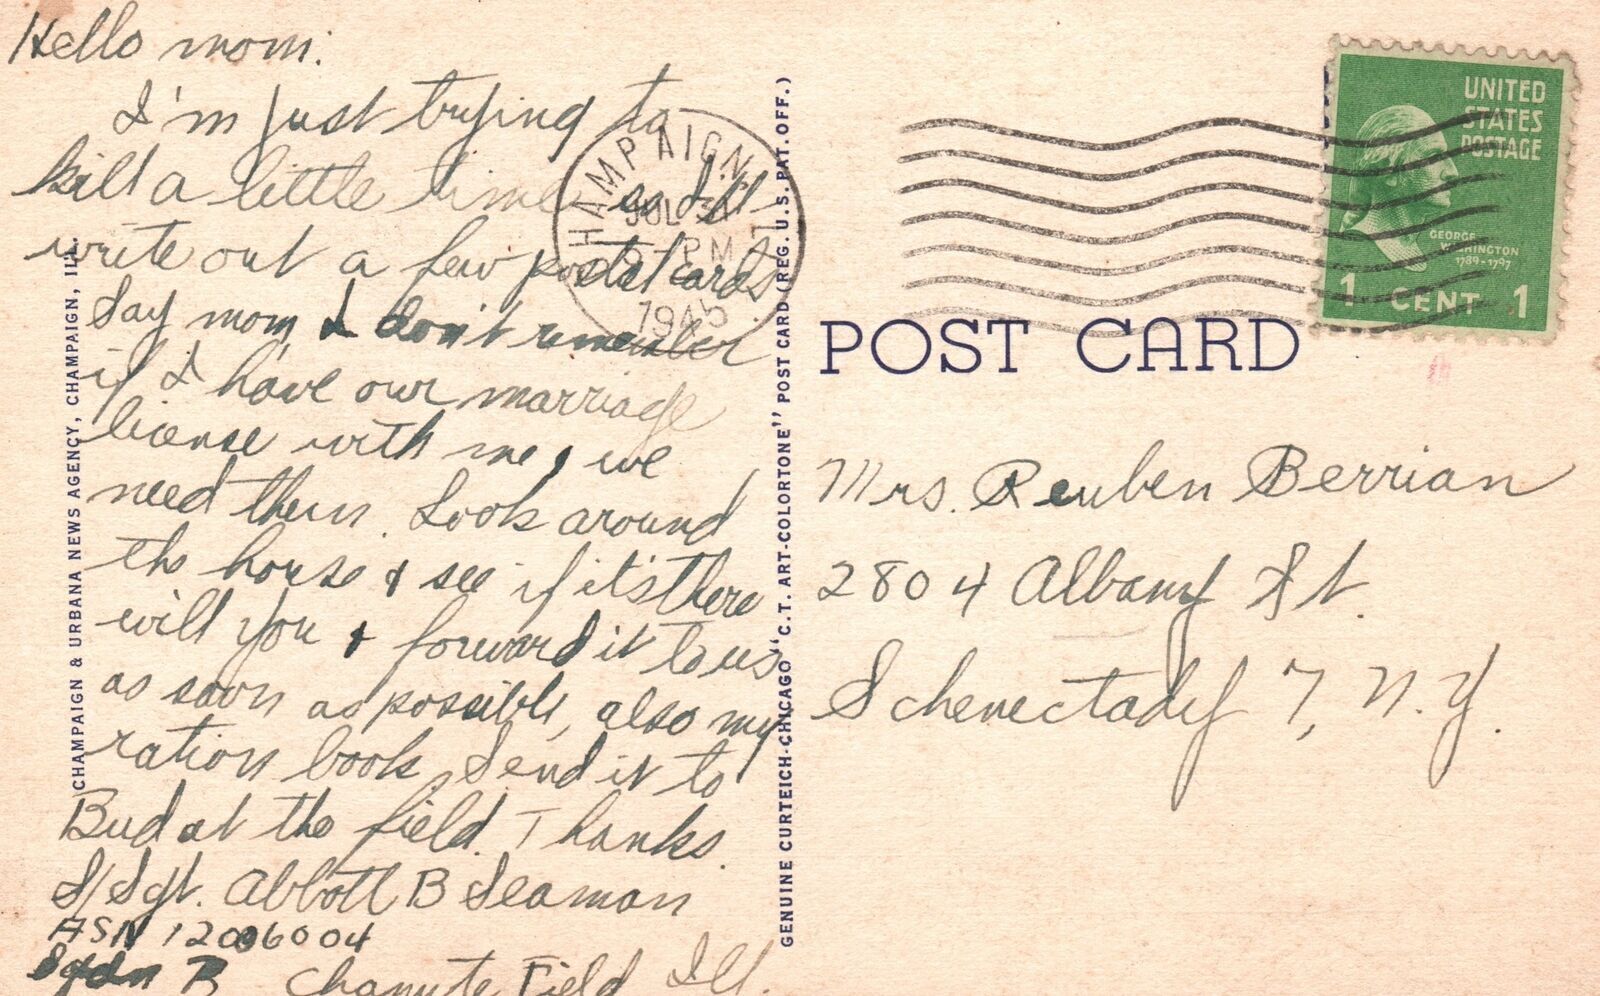 Hello mom:
I'm just trying to
kill a little time so I'll
write out a few postcards
Say mom, I don't remember
if I have our marriage
license with me, we
need them. Look around
the house & see if it's there
will you & forward it to us
as soon as possible, also my
ration book, Send it to
Bud at the field. Thanks.
S/Sgt. Abbott B Seaman
ASN 12006004
Sqdn B Chanute Field Ill.
CHAMPAIGN & URBANA NEWS AGENCY, CHAMPAIGN, ILL.
GENUINE CURTEICH-CHICAGO "C.T. ART-COLORTONE" POST CARD (REG. U.S. PAT. OFF.)
CHAMPAIGN
JUL
PM
1945
UNITED
STATES
POSTAGE
GEORGE
WASHINGTON
1789-1797
1 CENT 1
POST CARD
Mrs. Reuben Berrian
2804 Albany St.
Schenectady 7, N.Y.